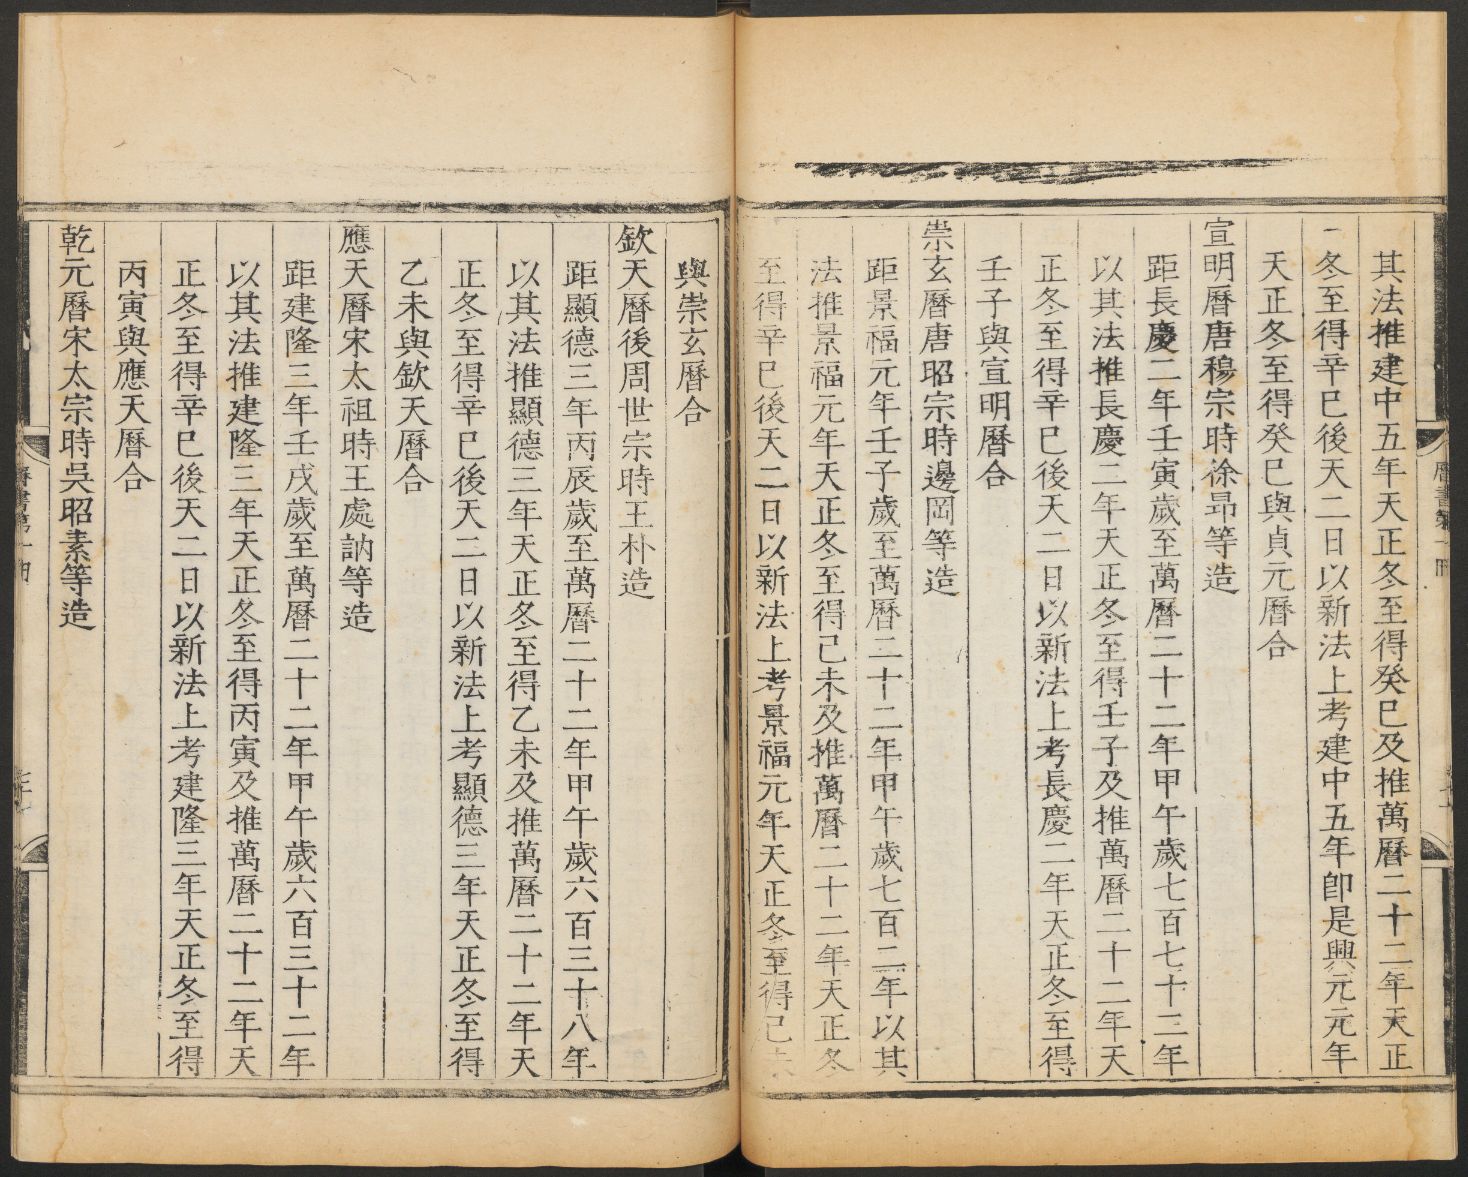 其法推建中五年天正冬至得癸巳及推萬曆二十二年天正
冬至得辛巳後天二日以新法上考建中五年卽是興元元年
天正冬至得癸巳與貞元曆合
宣明曆唐穆宗時徐昻等造
距長慶二年壬寅歲至萬曆二十二年甲午歲七百七十二年
以其法推長慶二年天正冬至得壬子及推萬曆二十二年天
正冬至得辛巳後天二日以新法上考長慶二年天正冬至得
壬子與宣明曆合
崇玄曆唐昭宗時邊岡等造
距景福元年壬子歲至萬曆二十二年甲午歲七百二年以其
法推景福元年天正冬至得己未及推萬曆二十二年天正冬
至得辛巳後天二日以新法上考景福元年天正冬至得己未
與崇玄曆合
欽天曆後周世宗時王朴造
距顯德三年丙辰歲至萬曆二十二年甲午歲六百三十八年
以其法推顯德三年天正冬至得乙未及推萬曆二十二年天
正冬至得辛巳後天二日以新法上考顯德三年天正冬至得
乙未與欽天曆合
應天曆宋太祖時王處訥等造
距建隆三年壬戌歲至萬曆二十二年甲午歲六百三十二年
以其法推建隆三年天正冬至得丙寅及推萬曆二十二年天
正冬至得辛巳後天二日以新法上考建隆三年天正冬至得
丙寅與應天曆合
乾元曆宋太宗時吳昭素等造
曆書第一冊